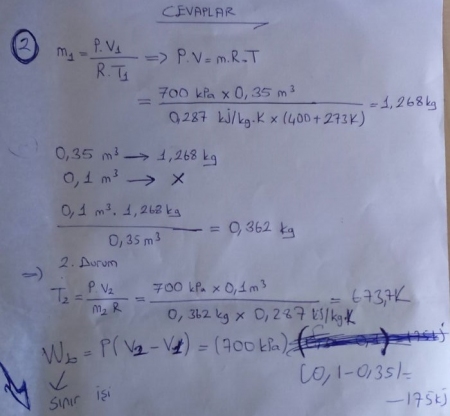 CEVAPLAR
2 m₁ = P.V₁ / R.T₁ => P.V = m.R.T
= 700 kPa x 0,35 m³ / 0,287 kJ/kg.K x (400+273K) = 1,268 kg
0,35 m³ → 1,268 kg
0,1 m³ → x
0,1 m³ . 1,268 kg / 0,35 m³ = 0,362 kg
=> 2. Durum
T₂ = P.V₂ / m₂ R = 700 kPa x 0,1 m³ / 0,362 kg x 0,287 kJ/kg.K = 673,7K
Wb = P(V₂ - V₁) = (700 kPa)
[0,1-0,35] =
sınır işi
-175kj